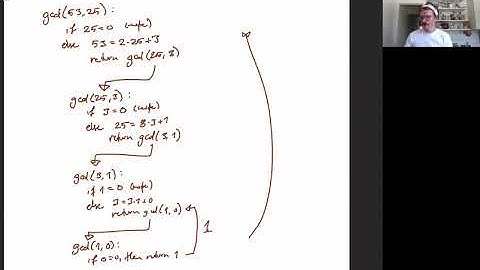 gcd(53,25):
if 25=0 (nope)
else 53=2·25+3
return gcd(25,3)
gcd(25,3):
if 3=0 (nope)
else 25=8·3+1
return gcd(3,1)
gcd(3,1):
if 1=0 (nope)
else 3=3·1+0
return gcd(1,0)
1
gcd(1,0):
if 0=0, then return 1